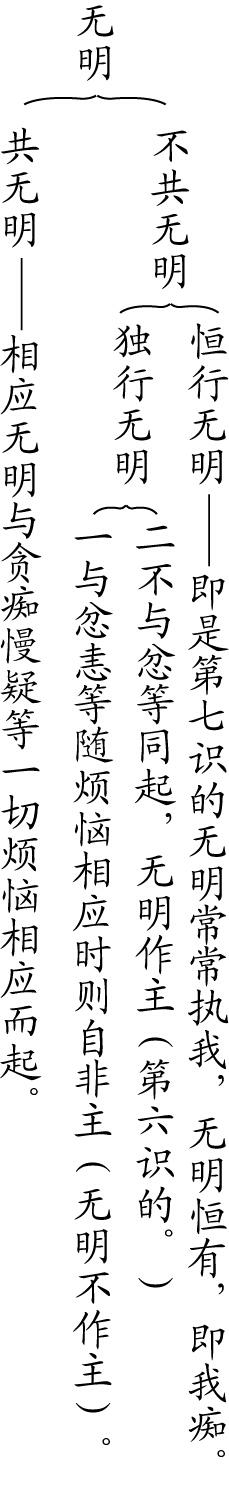 无明
不共无明
恒行无明——即是第七识的无明常常执我，无明恒有，即我痴。
独行无明
二不与忿等同起，无明作主（第六识的。）
一与忿恚等随烦恼相应时则自非主（无明不作主）。
共无明——相应无明与贪痴慢疑等一切烦恼相应而起。